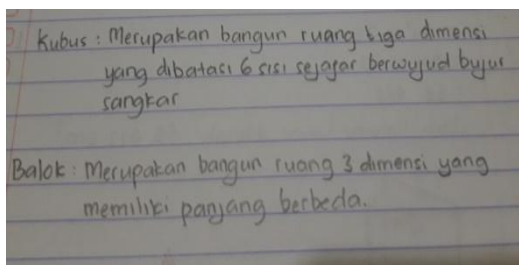 Kubus : Merupakan bangun ruang tiga dimensi
yang dibatasi 6 sisi sejajar berwujud bujur
sangkar
Balok : Merupakan bangun ruang 3 dimensi yang
memiliki panjang berbeda.